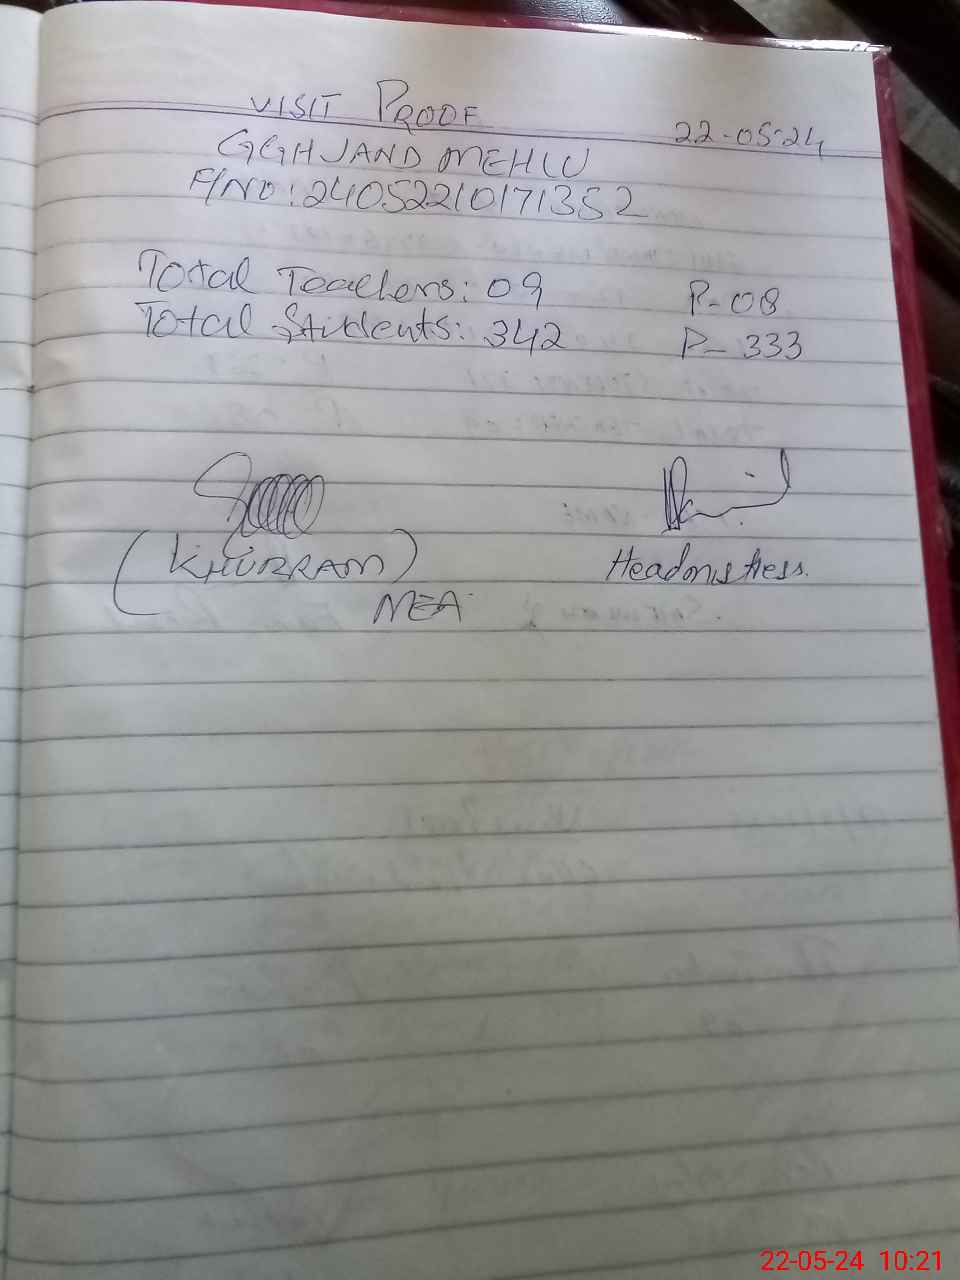 VISIT PROOF
22-05-24
GGH JAND MEHLU
F/NO: 24052210171352
Total Teachers: 09 P-08
Total Students: 342 P-333
(KHURRAM)
Headmistress.
MEA
22-05-24 10:21